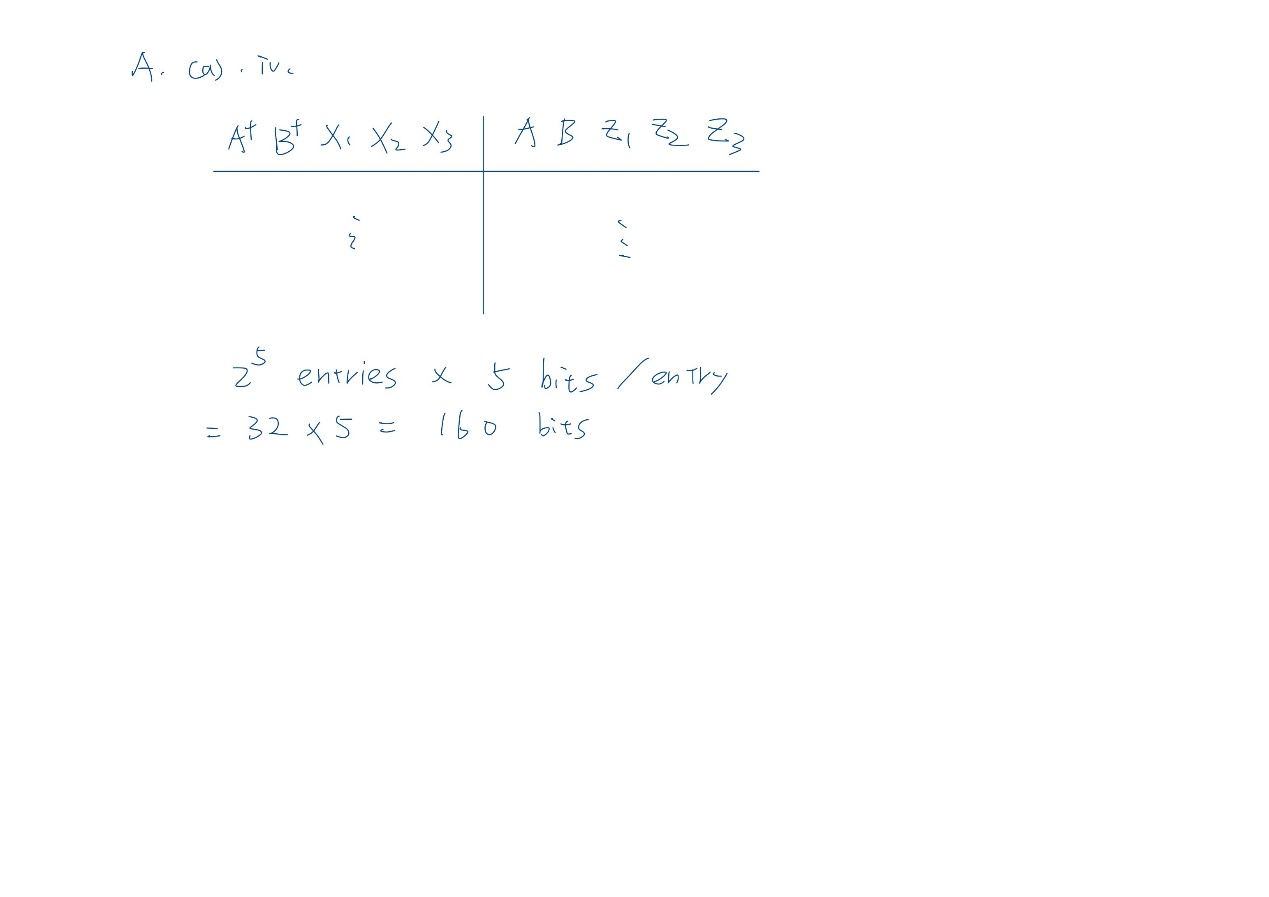 A. (a). iv.
A⁺ B⁺ X₁ X₂ X₃ | A B Z₁ Z₂ Z₃
⋮ ⋮
2⁵ entries × 5 bits / entry
= 32 × 5 = 160 bits